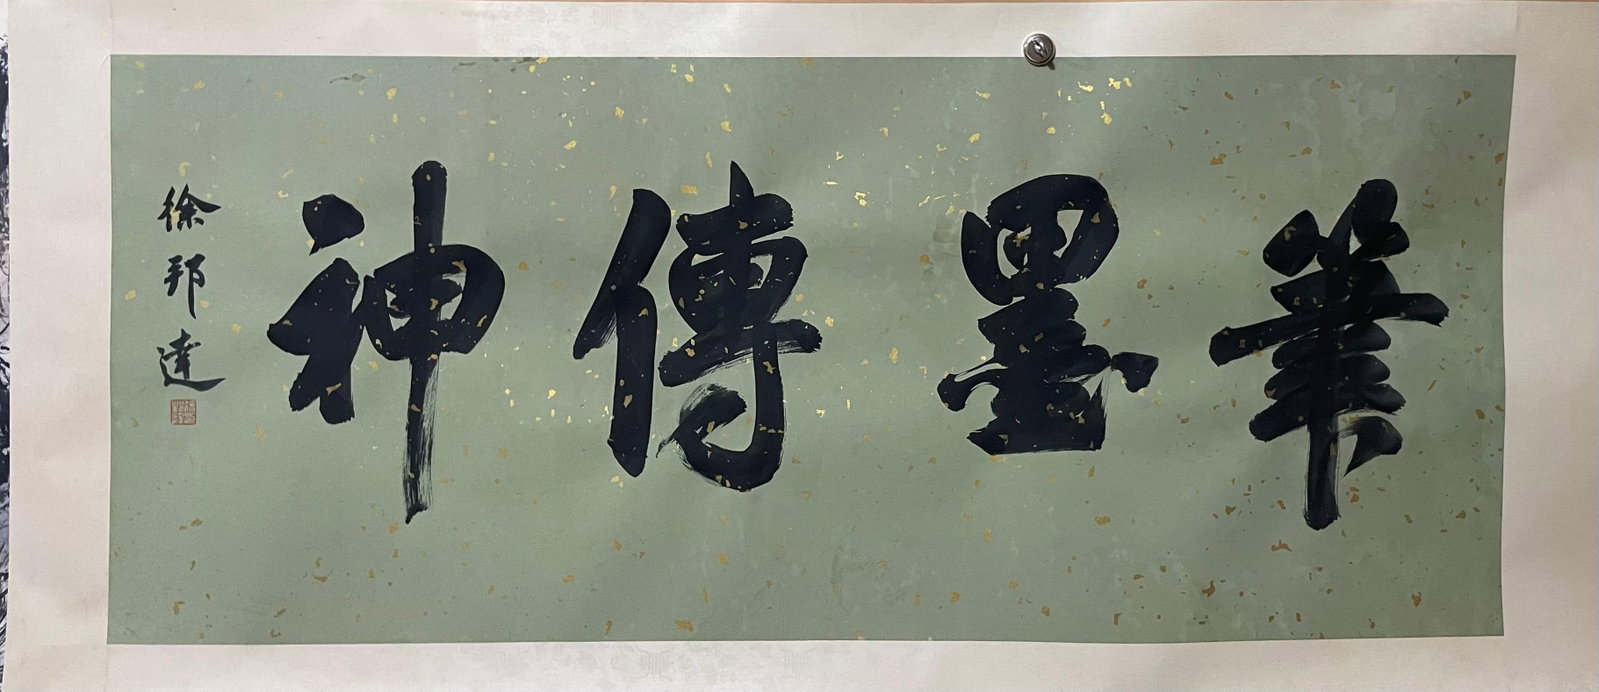 筆墨傳神
徐邦達